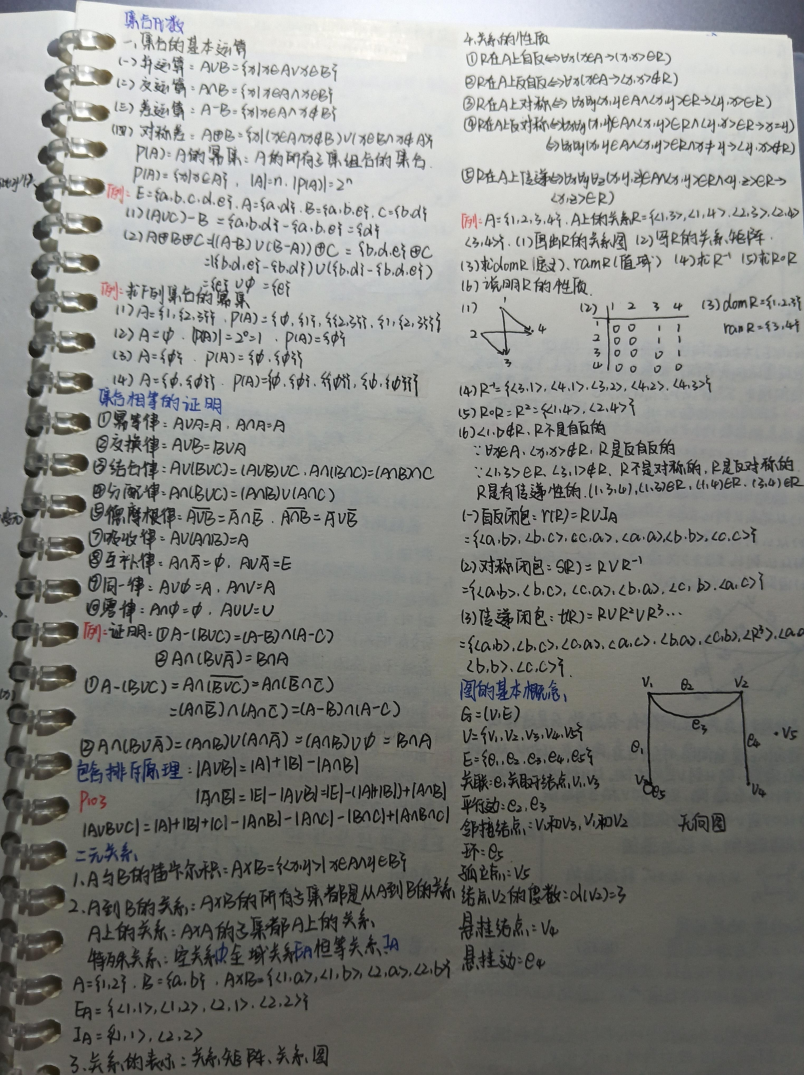 集合代数
一、集合的基本运算
(一) 并运算: A∪B={x|x∈A∨x∈B}
(二) 交运算: A∩B={x|x∈A∧x∈B}
(三) 差运算: A-B={x|x∈A∧x∉B}
(四) 对称差: A⊕B={x|(x∈A∧x∉B)∨(x∈B∧x∉A)}
P(A)=A的幂集: A的所有子集组合的集合.
P(A)={x|x⊆A}, |A|=n, |P(A)|=2ⁿ
例: E={a,b,c,d,e}, A={a,d}, B={a,b,e}, C={b,d}
(1) (A∪C)-B={a,b,d}-{a,b,e}={d}
(2) A⊕B⊕C=((A-B)∪(B-A))⊕C={b,d,e}⊕C
=({b,d,e}-{b,d})∪({b,d}-{b,d,e})
={e}∪φ={e}
例: 求下列集合的幂集
(1) A={1,{2,3}}, P(A)={φ,{1},{{2,3}},{1,{2,3}}}
(2) A=φ, |P(A)|=2⁰=1, P(A)={φ}
(3) A={φ}, P(A)={φ,{φ}}
(4) A={φ,{φ}}, P(A)={φ,{φ},{{φ}},{φ,{φ}}}
集合相等的证明
①幂等律: A∪A=A, A∩A=A
②交换律: A∪B=B∪A
③结合律: A∪(B∪C)=(A∪B)∪C, A∩(B∩C)=(A∩B)∩C
④分配律: A∩(B∪C)=(A∩B)∪(A∩C)
⑤德摩根律: A̅∪̅B̅=A̅∩B̅, A̅∩̅B̅=A̅∪B̅
吸收律: A∪(A∩B)=A
互补律: A∩A̅=φ, A∪A̅=E
同一律: A∪φ=A, A∩U=A
零律: A∩φ=φ, A∪U=U
例:证明: ①A-(B∪C)=(A-B)∩(A-C)
②A∩(B∪A̅)=B∩A
①A-(B∪C)=A∩(B̅∪̅C̅)=A∩(B̅∩C̅)
=(A∩B̅)∩(A∩C̅)=(A-B)∩(A-C)
②A∩(B∪A̅)=(A∩B)∪(A∩A̅)=(A∩B)∪φ=B∩A
包含排斥原理: |A∪B|=|A|+|B|-|A∩B|
P103
|A̅∩B̅|=|E|-|A∪B|=|E|-(|A|+|B|)+|A∩B|
|A∪B∪C|=|A|+|B|+|C|-|A∩B|-|A∩C|-|B∩C|+|A∩B∩C|
二元关系
1.A与B的笛卡尔积: A×B={<x,y>|x∈A∧y∈B}
2.A到B的关系: A×B的所有子集都是从A到B的关系
A上的关系: A×A的子集都A上的关系
特殊关系: 空关系φ 全域关系EA 恒等关系IA
A={1,2}, B={a,b}, A×B={<1,a>,<1,b>,<2,a>,<2,b>}
EA={<1,1>,<1,2>,<2,1>,<2,2>}
IA={<1,1>,<2,2>
3.关系的表示: 关系矩阵、关系图
4.关系的性质
①R在A上自反⇔∀x(x∈A→<x,x>∈R)
②R在A上反自反⇔∀x(x∈A→<x,x>∉R)
③R在A上对称⇔∀x∀y(x,y∈A∧<x,y>∈R→<y,x>∈R)
④R在A上反对称⇔∀x∀y(x,y∈A∧<x,y>∈R∧<y,x>∈R→x=y)
⇔∀x∀y(x,y∈A∧<x,y>∈R∧x≠y→<y,x>∉R)
⑤R在A上传递⇔∀x∀y∀z(x,y,z∈A∧<x,y>∈R∧<y,z>∈R→
<x,z>∈R)
例: A={1,2,3,4}, A上的关系R={<1,3>,<1,4>,<2,3>,<2,4>
<3,4>}. (1)画出R的关系图 (2)写R的关系矩阵.
(3)求domR(定义)、ranR(值域) (4)求R⁻¹ (5)求R∘R
(6)说明R的性质
(1) 1 2 3 4
(2) 1 2 3 4
1 0 0 1 1
2 0 0 1 1
3 0 0 0 1
4 0 0 0 0
(3) domR={1,2,3}
ranR={3,4}
(4) R⁻¹={<3,1>,<4,1>,<3,2>,<4,2>,<4,3>}
(5) R∘R=R²={<1,4>,<2,4>}
(6) <1,1>∉R, R不是自反的
∵∀x∈A, <x,x>∉R, R是反自反的
∵<1,3>∈R, <3,1>∉R, R不是对称的, R是反对称的
R是有传递性的. (1,3,4), (1,3)∈R, (1,4)∈R, (3,4)∈R
(一) 自反闭包: r(R)=R∪IA
={<a,b>,<b,c>,<c,a>,<a,a>,<b,b>,<c,c>}
(2) 对称闭包: S(R)=R∪R⁻¹
={<a,b>,<b,c>,<c,a>,<b,a>,<c,b>,<a,c>}
(3) 传递闭包: t(R)=R∪R²∪R³…
={<a,b>,<b,c>,<c,a>,<a,c>,<b,a>,<c,b>,<R³>,<a,a
<b,b>,<c,c>}
图的基本概念
G=(V,E)
V={V1,V2,V3,V4,V5}
E={e1,e2,e3,e4,e5}
关联: e1关联于结点V1,V3
平行边: e2,e3
邻接结点: V1和V3,V1和V2
环: e5
孤立点: V5
结点V2的度数: d(V2)=3
悬挂结点: V4
悬挂边: e4
V1 e2 V2
e3
e1 e4 ·V5
V3 e5 V4
无向图